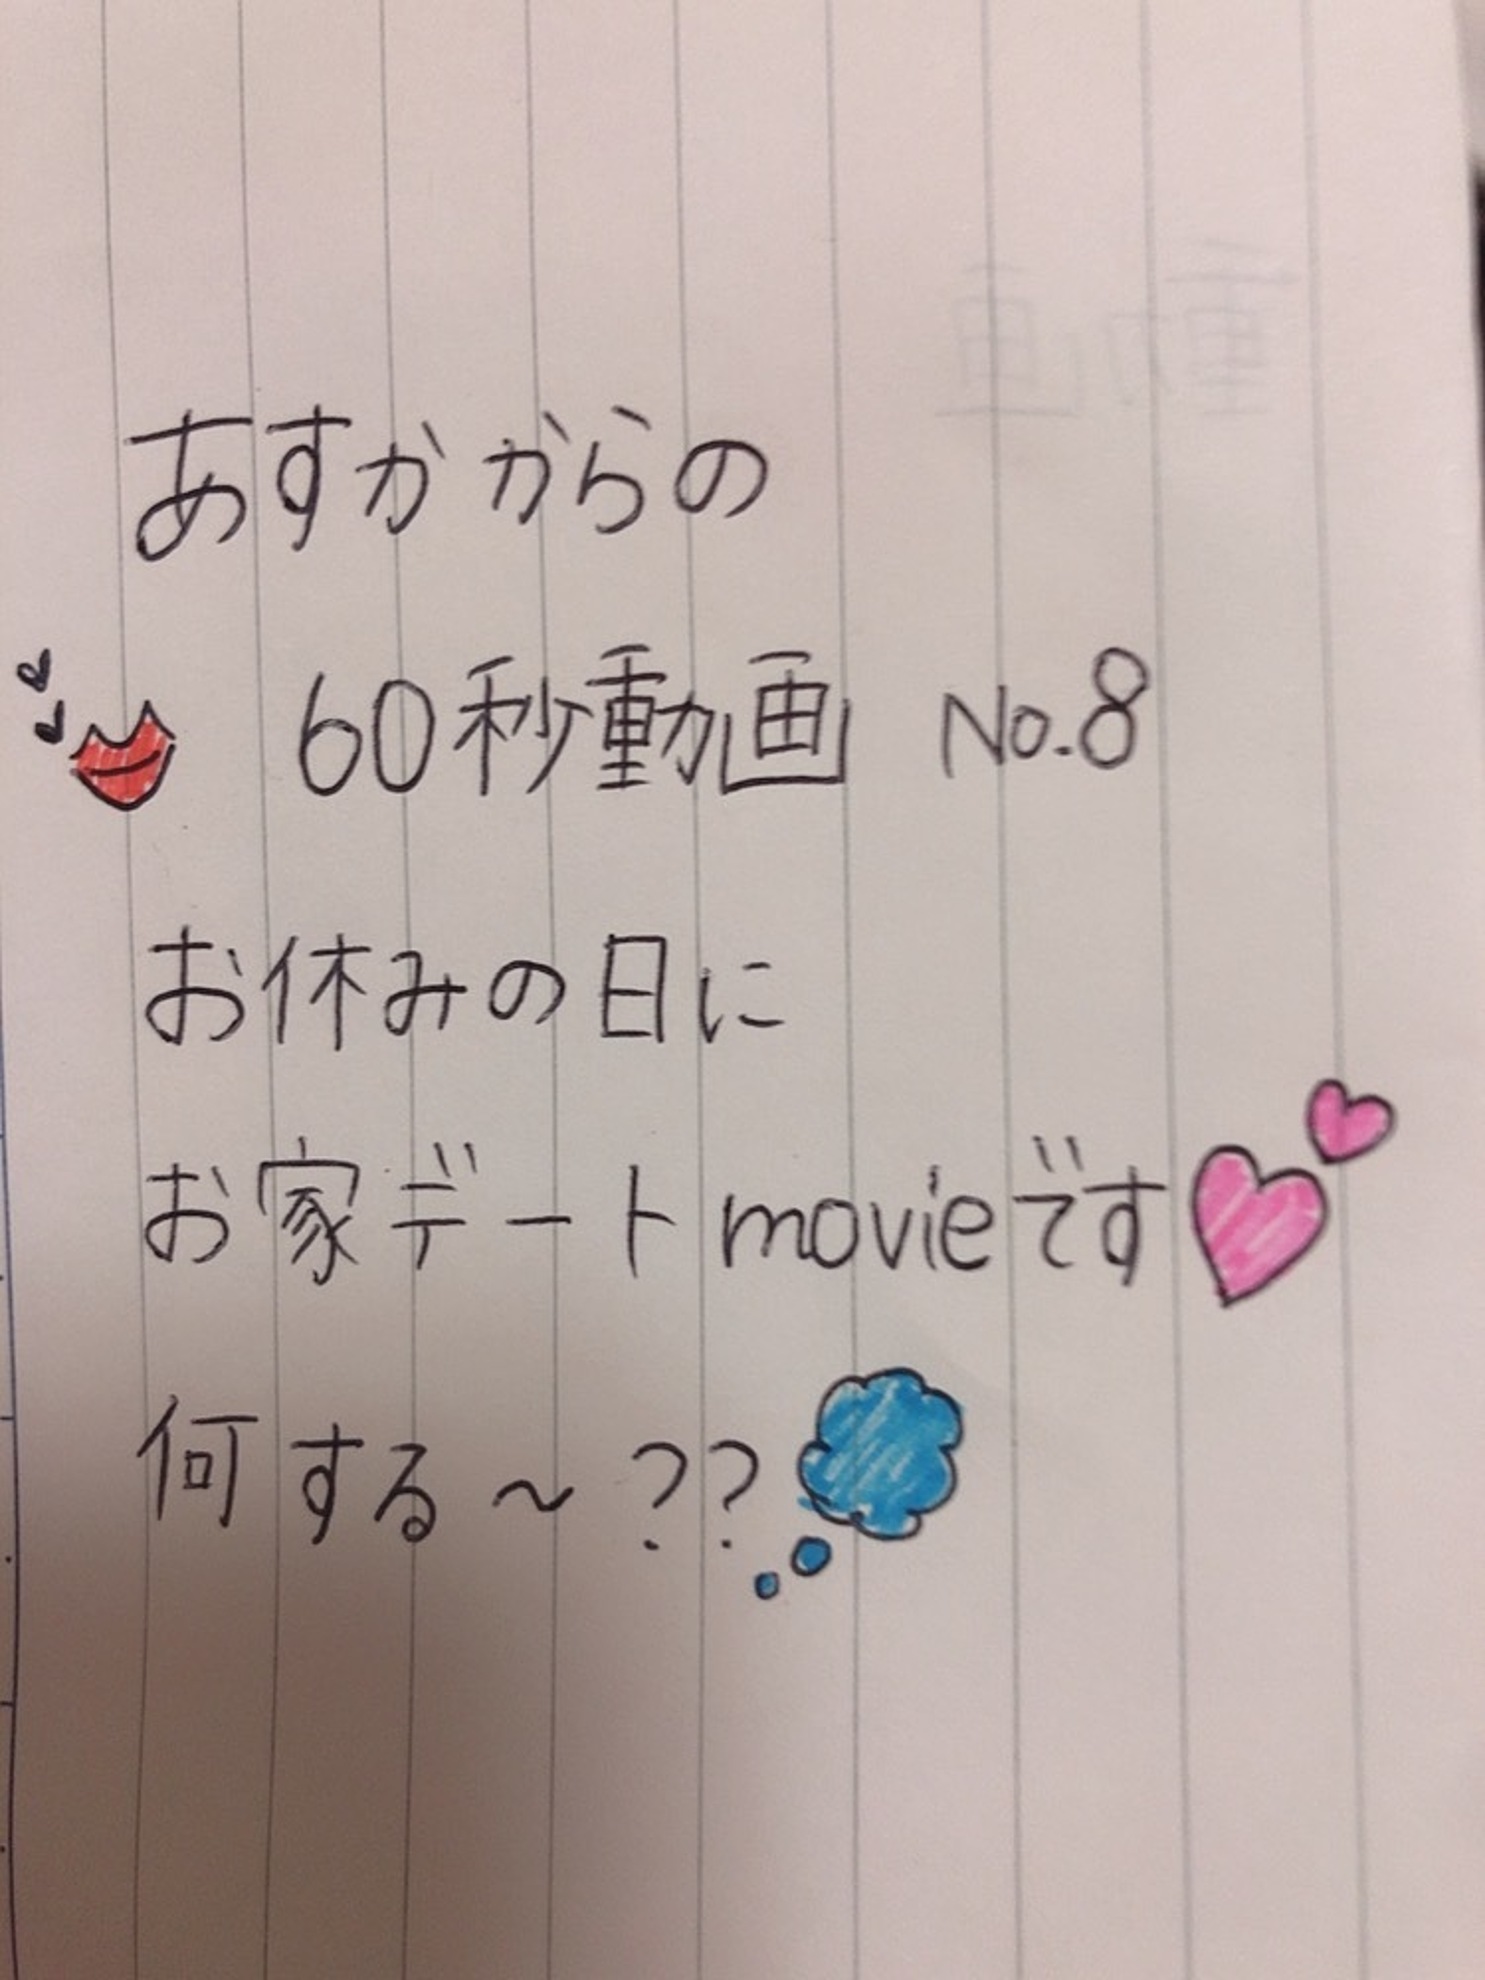 あすかからの
60秒動画 No.8
お休みの日に
お家デートmovieです
何する～??